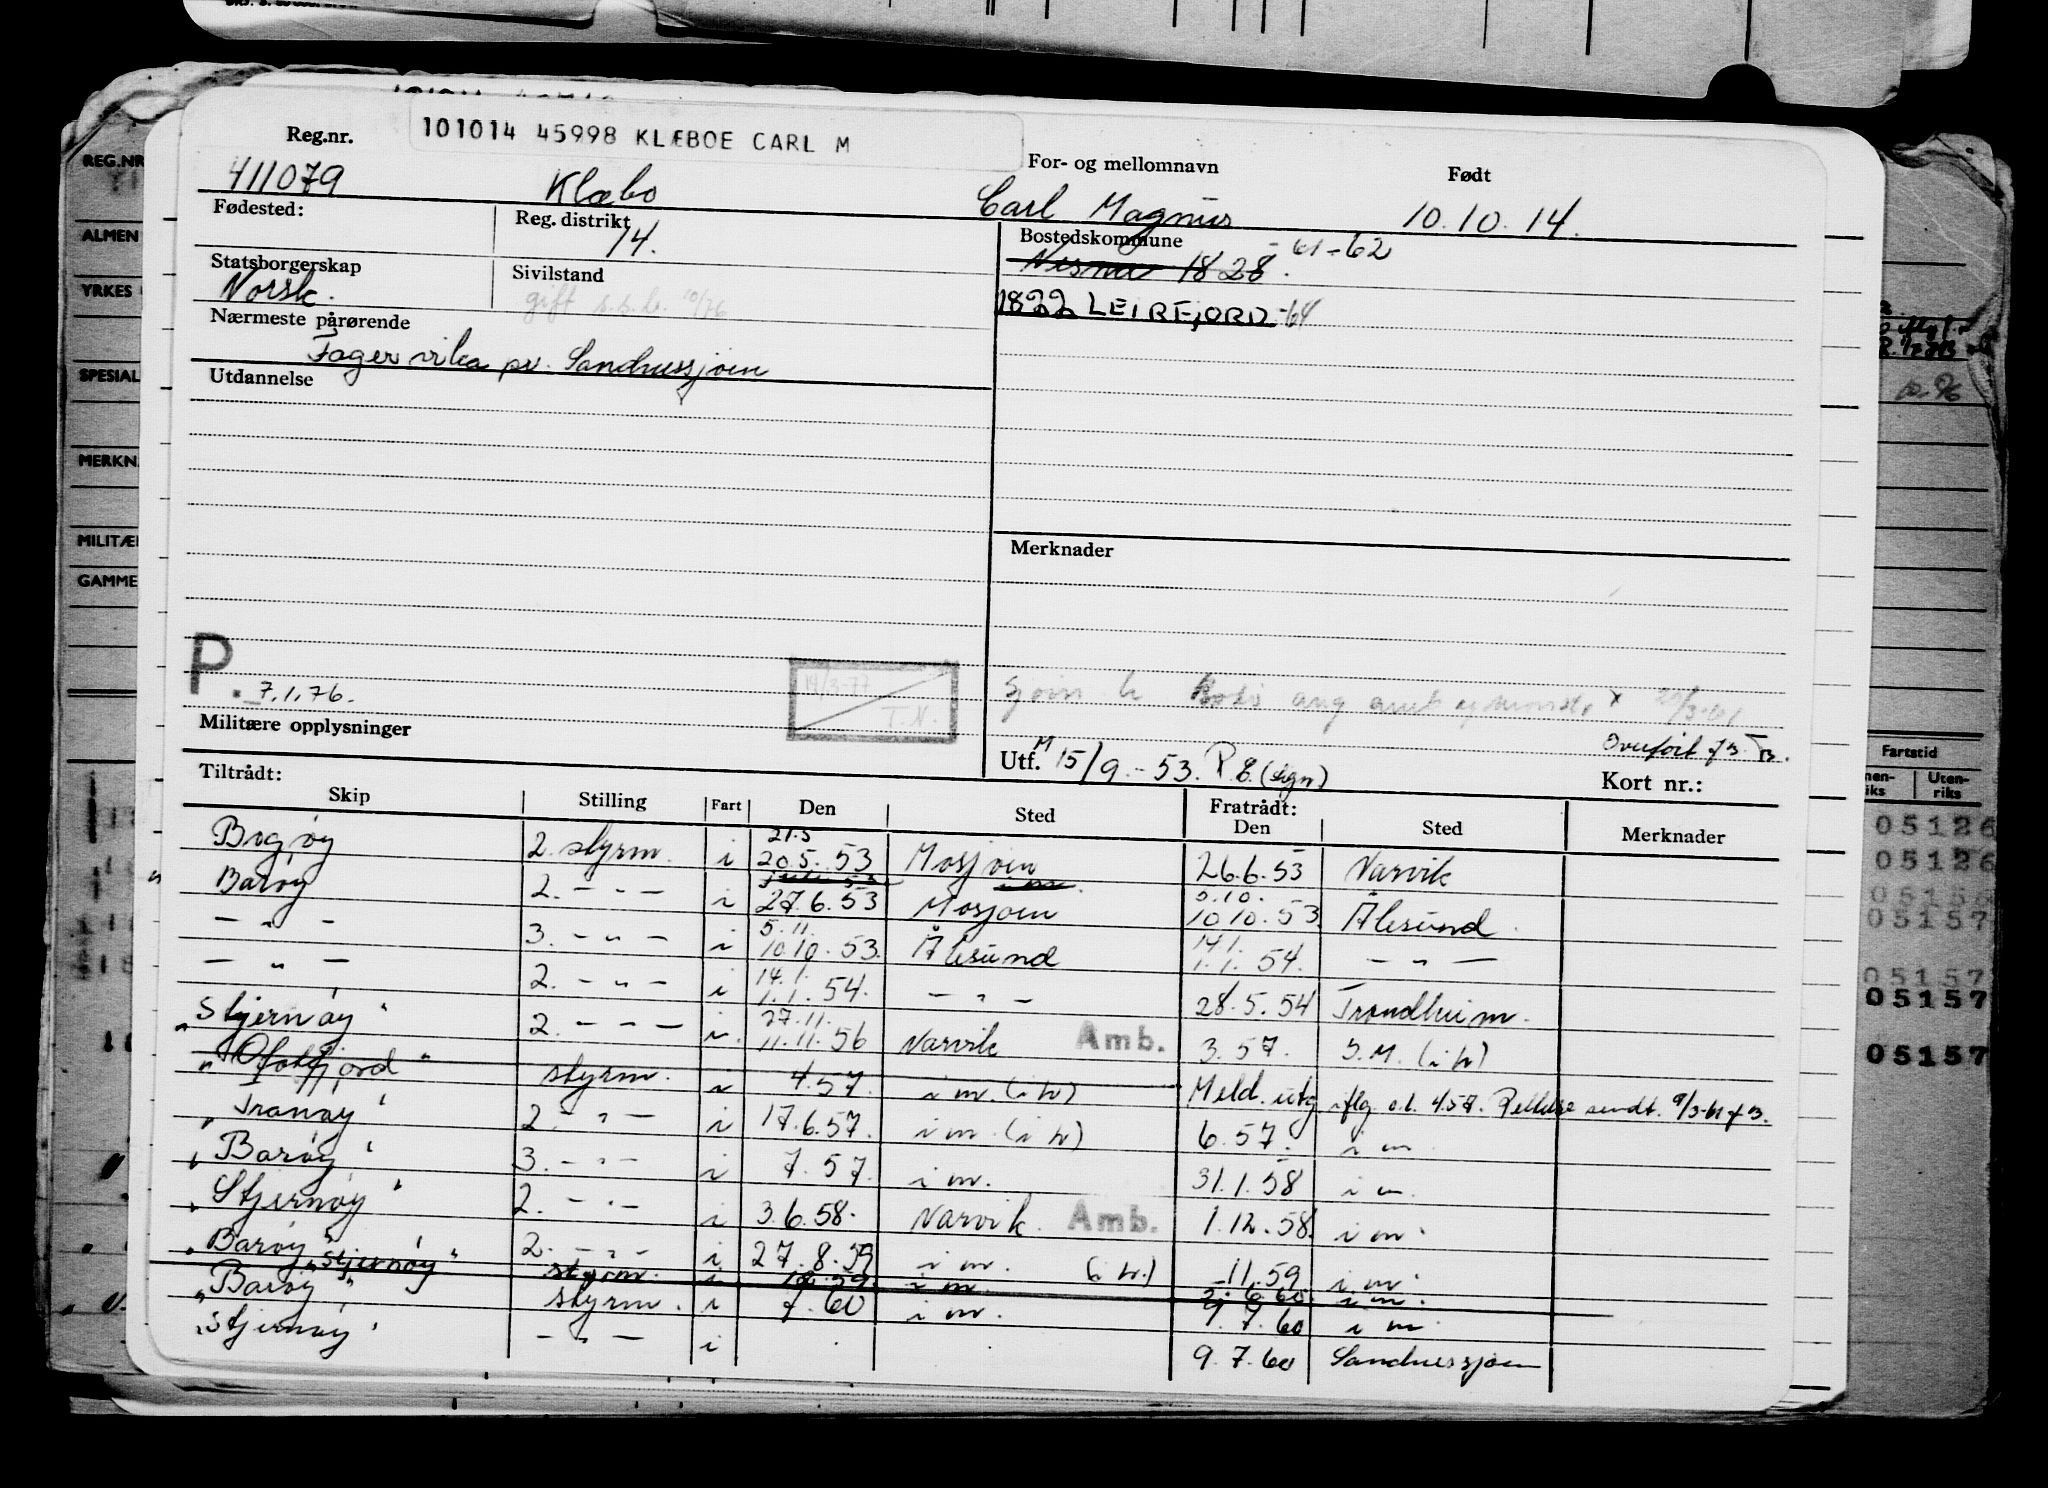 101014 45998 KLÆBOE CARL M
Reg.nr. For- og mellomnavn Født
411079 Klæbo Carl Magnus 10.10.14.
Fødested: Reg. distrikt 14. Bostedskommune
Nesna 1828. -61-62
Statsborgerskap Sivilstand
Norsk. gift s.s.b. 10/76
1822 LEIRFJORD -64
Nærmeste pårørende
Fagervika pr. Sandnessjøen
Utdannelse
Merknader
P. 7.1.76.
19/3-77
T.N.
Militære opplysninger
Overført
Utf. M 15/9.-53. P.E. (sign) Kort nr.:
Tiltrådt: Fratrådt:
Skip Stilling Fart Den Sted Den Sted Merknader
Bogøy 2. styrm. i 21.5 20.5.53 Mosjøen 26.6.53 Narvik
" Barøy 2. - " - i 27.6.53 Mosjøen 5.10. 10.10.53. Ålesund.
- " - 3. - " - i 5.11. 10.10.53. Ålesund 14.1. 1.1.54. - " -
- " - 2. - " - i 14.1. 1.1.54. - " - 28.5.54 Trondheim.
"Stjernøy" 2. - " - i. 27.11. 11.11.56 Narvik Amb. 3.57. S.M. (i h)
"Ofotfjord" styrm. i 4.57. i m. (i h) Meld. utg iflg. o.l. 4.57. sendt. 9/3-61
"Tranøy" 2. - " - i 17.6.57. i m. (i h) 6.57. i m.
"Barøy" 3. - " - i 7.57. i m. 31.1.58 i m.
"Stjernøy" 2. - " - i 3.6.58. Narvik. Amb. 1.12.58. i m.
"Barøy" 2. - " - i 27.8.59 i m. (i h.) 11.59. i m.
"Stjernøy" styrm. i i m. 2.6.60. i m.
"Barøy" styrm. i 7.60 i m. 7.7.60 i m.
"Stjernøy" - " - i 9.7.60 Sandnessjøen
REG.NR
ALMEN
YRKES
SPESIAL
MERKN
MILITÆ
GAMME
Fartstid
Uten-
riks
05126
05126
05156
05157
05157
05157
05157